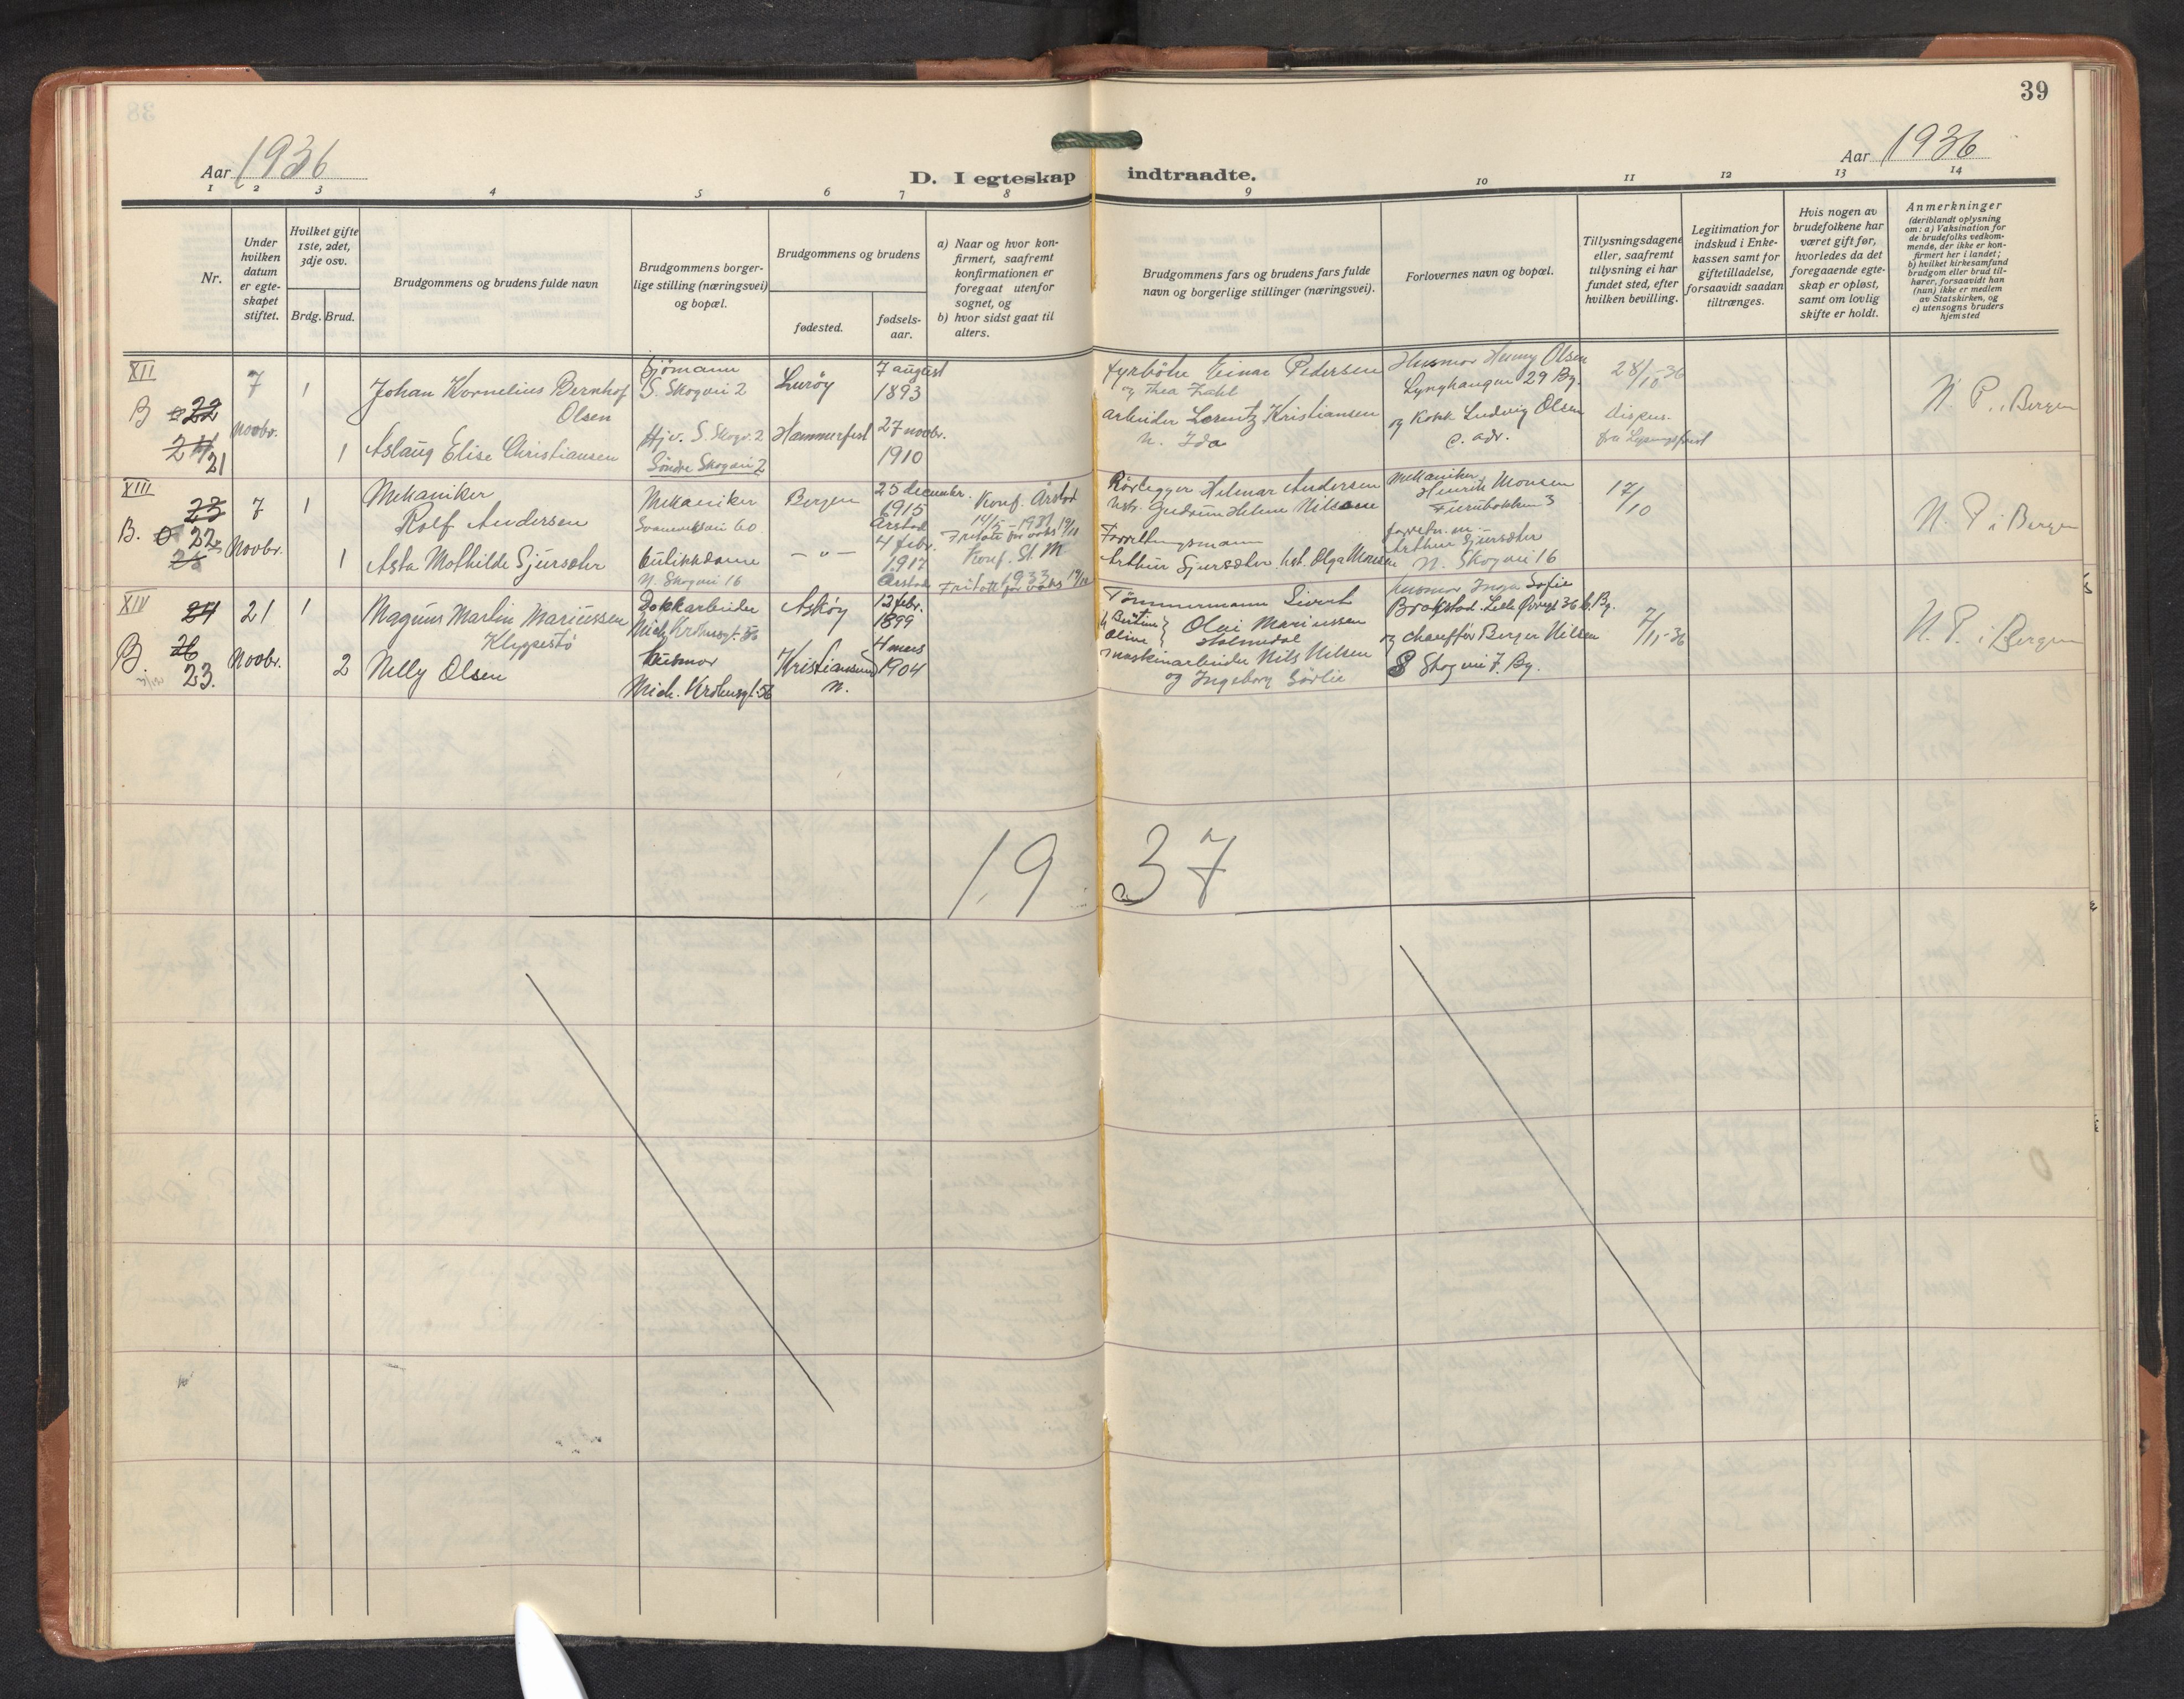 39
Aar 1936
D. I egteskap indtraadte.
Aar 1936
1 2 3 4 5 6 7 8 9 10 11 12 13 14
Nr.
Under hvilken datum er egte-skapet stiftet.
Hvilket gifte 1ste, 2det, 3dje osv.
Brdg. Brud.
Brudgommens og brudens fulde navn
Brudgommens borger-
lige stilling (næringsvei)
og bopæl.
Brudgommens og brudens
fødested.
fødsels-
aar.
a) Naar og hvor kon-
firmert, saafremt
konfirmationen er
foregaat utenfor
sognet, og
b) hvor sidst gaat til
alters.
Brudgommens fars og brudens fars fulde
navn og borgerlige stillinger (næringsvei).
Forlovernes navn og bopæl.
Tillysningsdagene
eller, saafremt
tillysning ei har
fundet sted, efter
hvilken bevilling.
Legitimation for
indskud i Enke-
kassen samt for
giftetilladelse,
forsaavidt saadan
tiltrænges.
Hvis nogen av
brudefolkene har
været gift før,
hvorledes da det
foregaaende egte-
skap er opløst,
samt om lovlig
skifte er holdt.
Anmerkninger
(deriblandt oplysning
om: a) Vaksination for
de brudefolks vedkom-
mende, der ikke er kon-
firmert her i landet;
b) hvilket kirkesamfund
brudgom eller brud til-
hører, forsaavidt han
(hun) ikke er medlem
av Statskirken, og
c) utensogns bruders
hjemsted
XII
B 22
24 21
7
Novbr.
1
1
Johan Kornelius Bernhof
Olsen
Aslaug Elise Christiansen
Sjømann
S. Skogvei 2
Hjv. S. Skogv. 2
Søndre Skogvei 2
Lurøy
Hammerfest
7 august
1893
27 novbr.
1910
Fyrbøter Einar Pedersen
og Thea
arbeider Kristiansen
Ida
Husmor Henny Olsen
29 Bg.
og Kokk Ludvig Olsen
28/10-36
N. P. i Bergen
XIII
23
B. 22
25
7
Novbr.
1
1
Mekaniker
Rolf Andersen
Asta Mathilde Sjursæter
Mekaniker
60
N. Skogvei 16
Bergen
— " —
25 decembr.
1915
Årstad
4 febr.
1917
Årstad
Konf. Årstad
14/5 - 1931
Konf. St. M
1933
Rørlegger Hilmar Andersen
Gudrun Helene Nilsen
Arthur Sjursæter Olga Monsen
Mekaniker
Henrik Monsen
3
Arthur Sjursæter
N. Skogvei 16
17/10
N. P i Bergen
XIV
24
B. 26
23.
21
Novbr.
1
2
Magnus Martin Mariussen
Kleppestø
Nelly Olsen
Dokkarbeider
Mich. Krohnsgt. 56
Husmor
Mich. Krohnsgt. 56
Askøy
Kristiansund
N.
12 febr.
1899
4 mars
1904
Tømmermann Sivert
Olai Mariussen
maskinarbeider Nils Nilsen
og Ingeborg Sørlie
Husmor Inga Sofie
Brakstad
og chauffør Berger Nilsen
S Skogvei 7. Bg.
7/11-36
N. P. i Bergen
1937